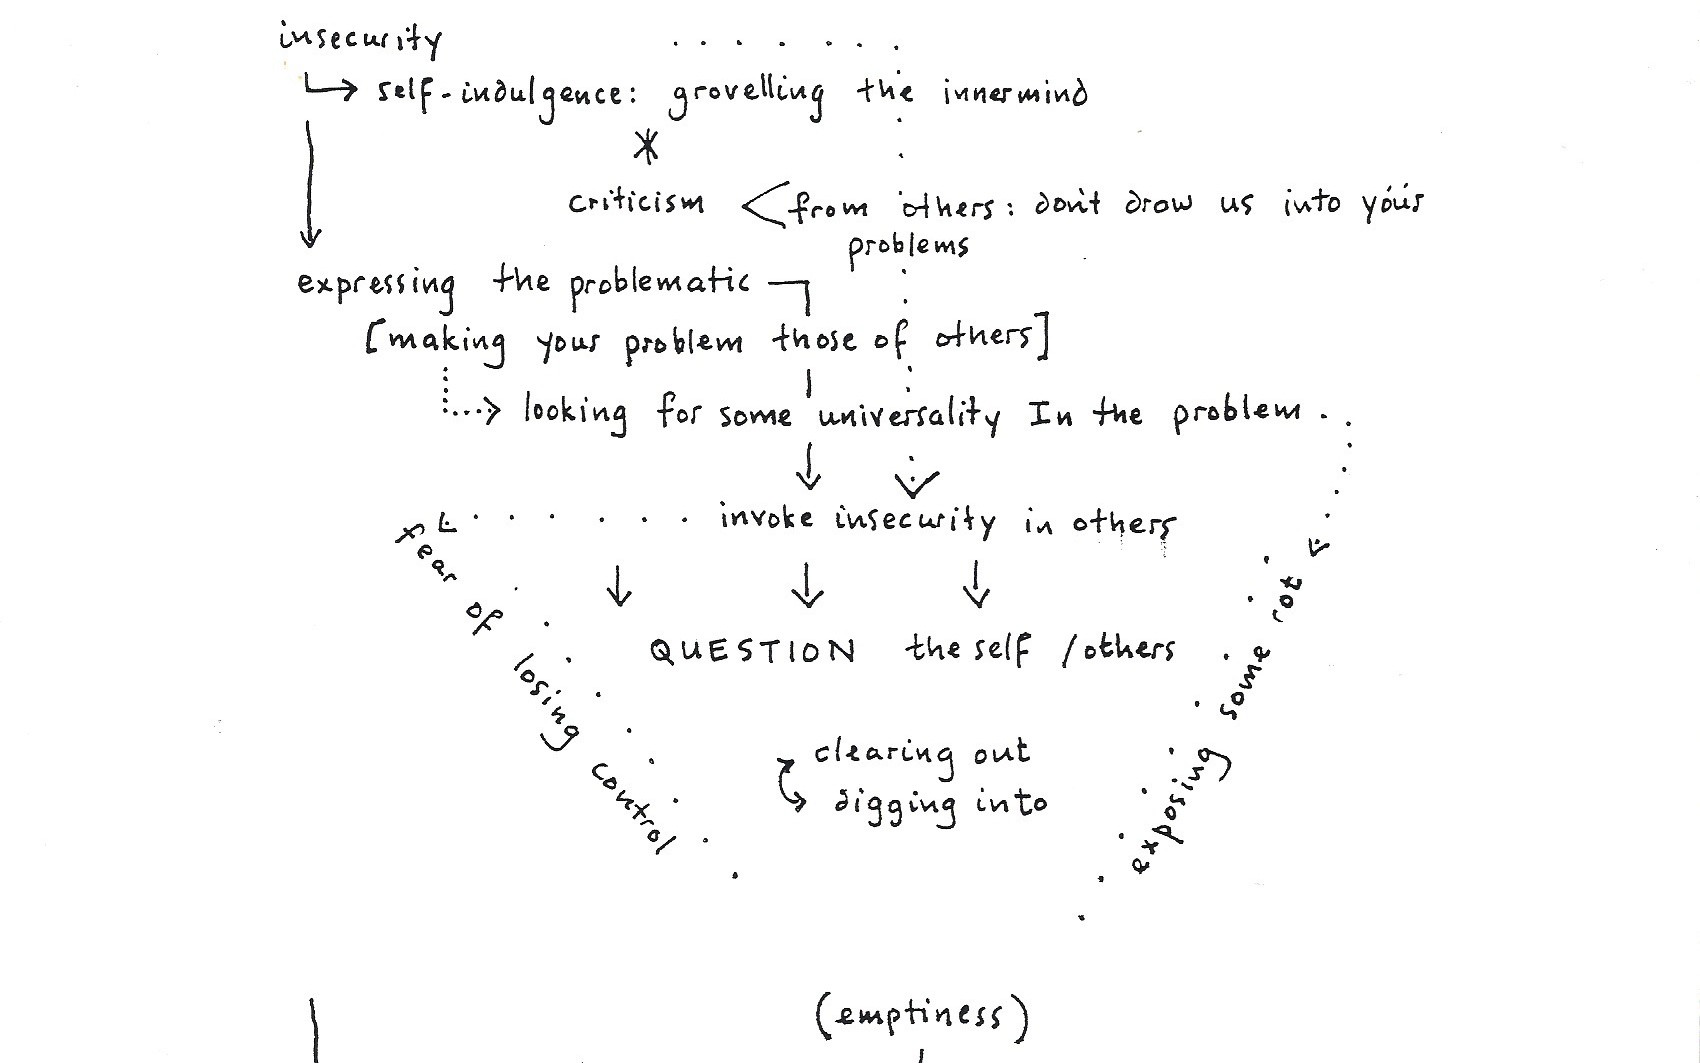 insecurity
self-indulgence: grovelling the innermind
*
criticism < from others: don't draw us into your
problems
expressing the problematic
[making your problem those of others]
looking for some universality In the problem.
invoke insecurity in others
fear of losing control
exposing some rot
QUESTION the self / others
clearing out
digging into
(emptiness)